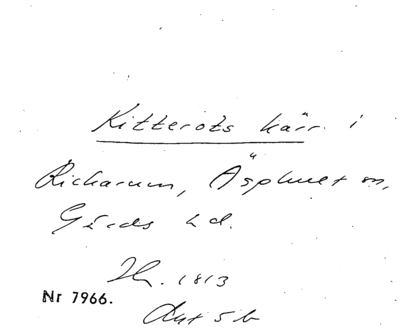 Kitterots kärr i
Rickarum, Äsphult sn,
Gärds hd.
1813
Nr 7966.
Akt 5 b